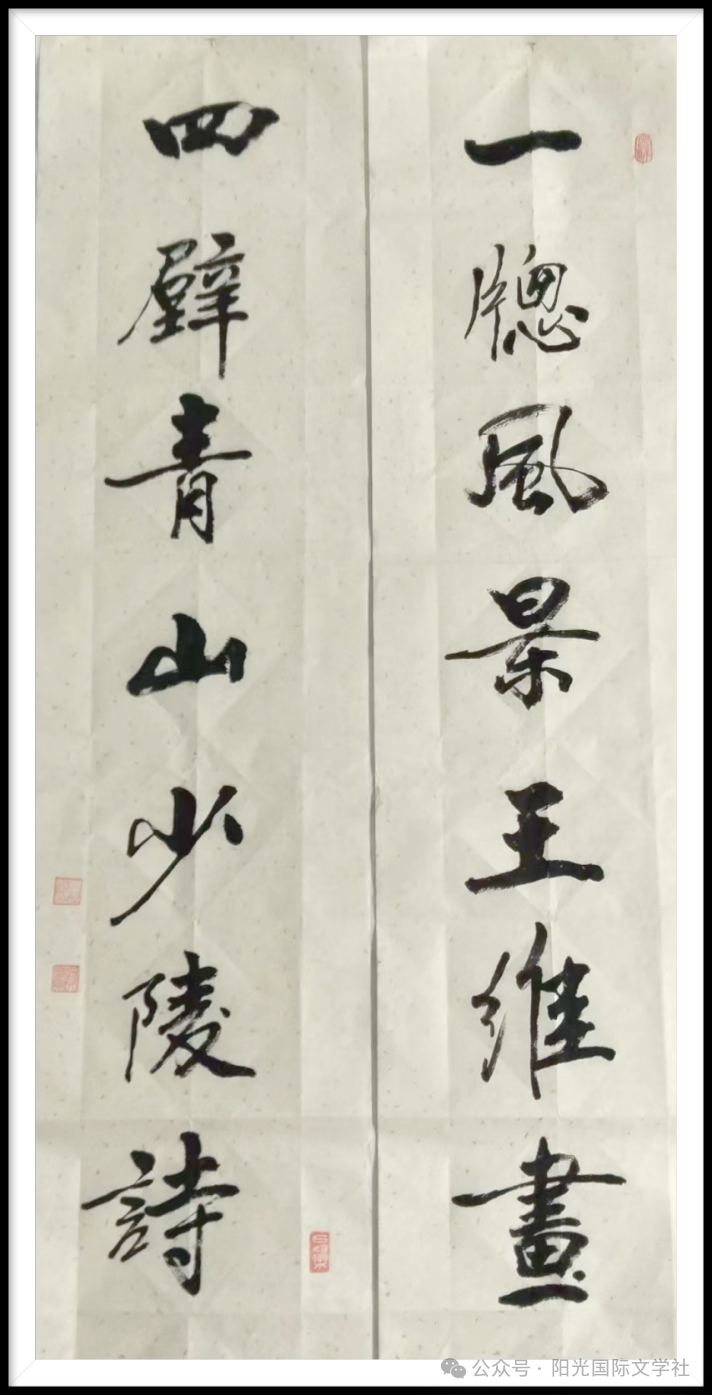 一牕風景王維畫
四壁青山少陵詩
公众号 · 阳光国际文学社